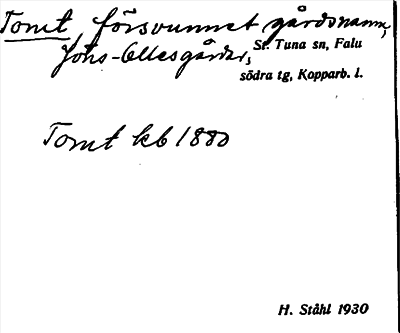 Tomt, försvunnet gårdsnamn,
Jons-Ollesgården,
St. Tuna sn, Falu
södra tg, Kopparb. l.
Tomt kb 1880
H. Ståhl 1930